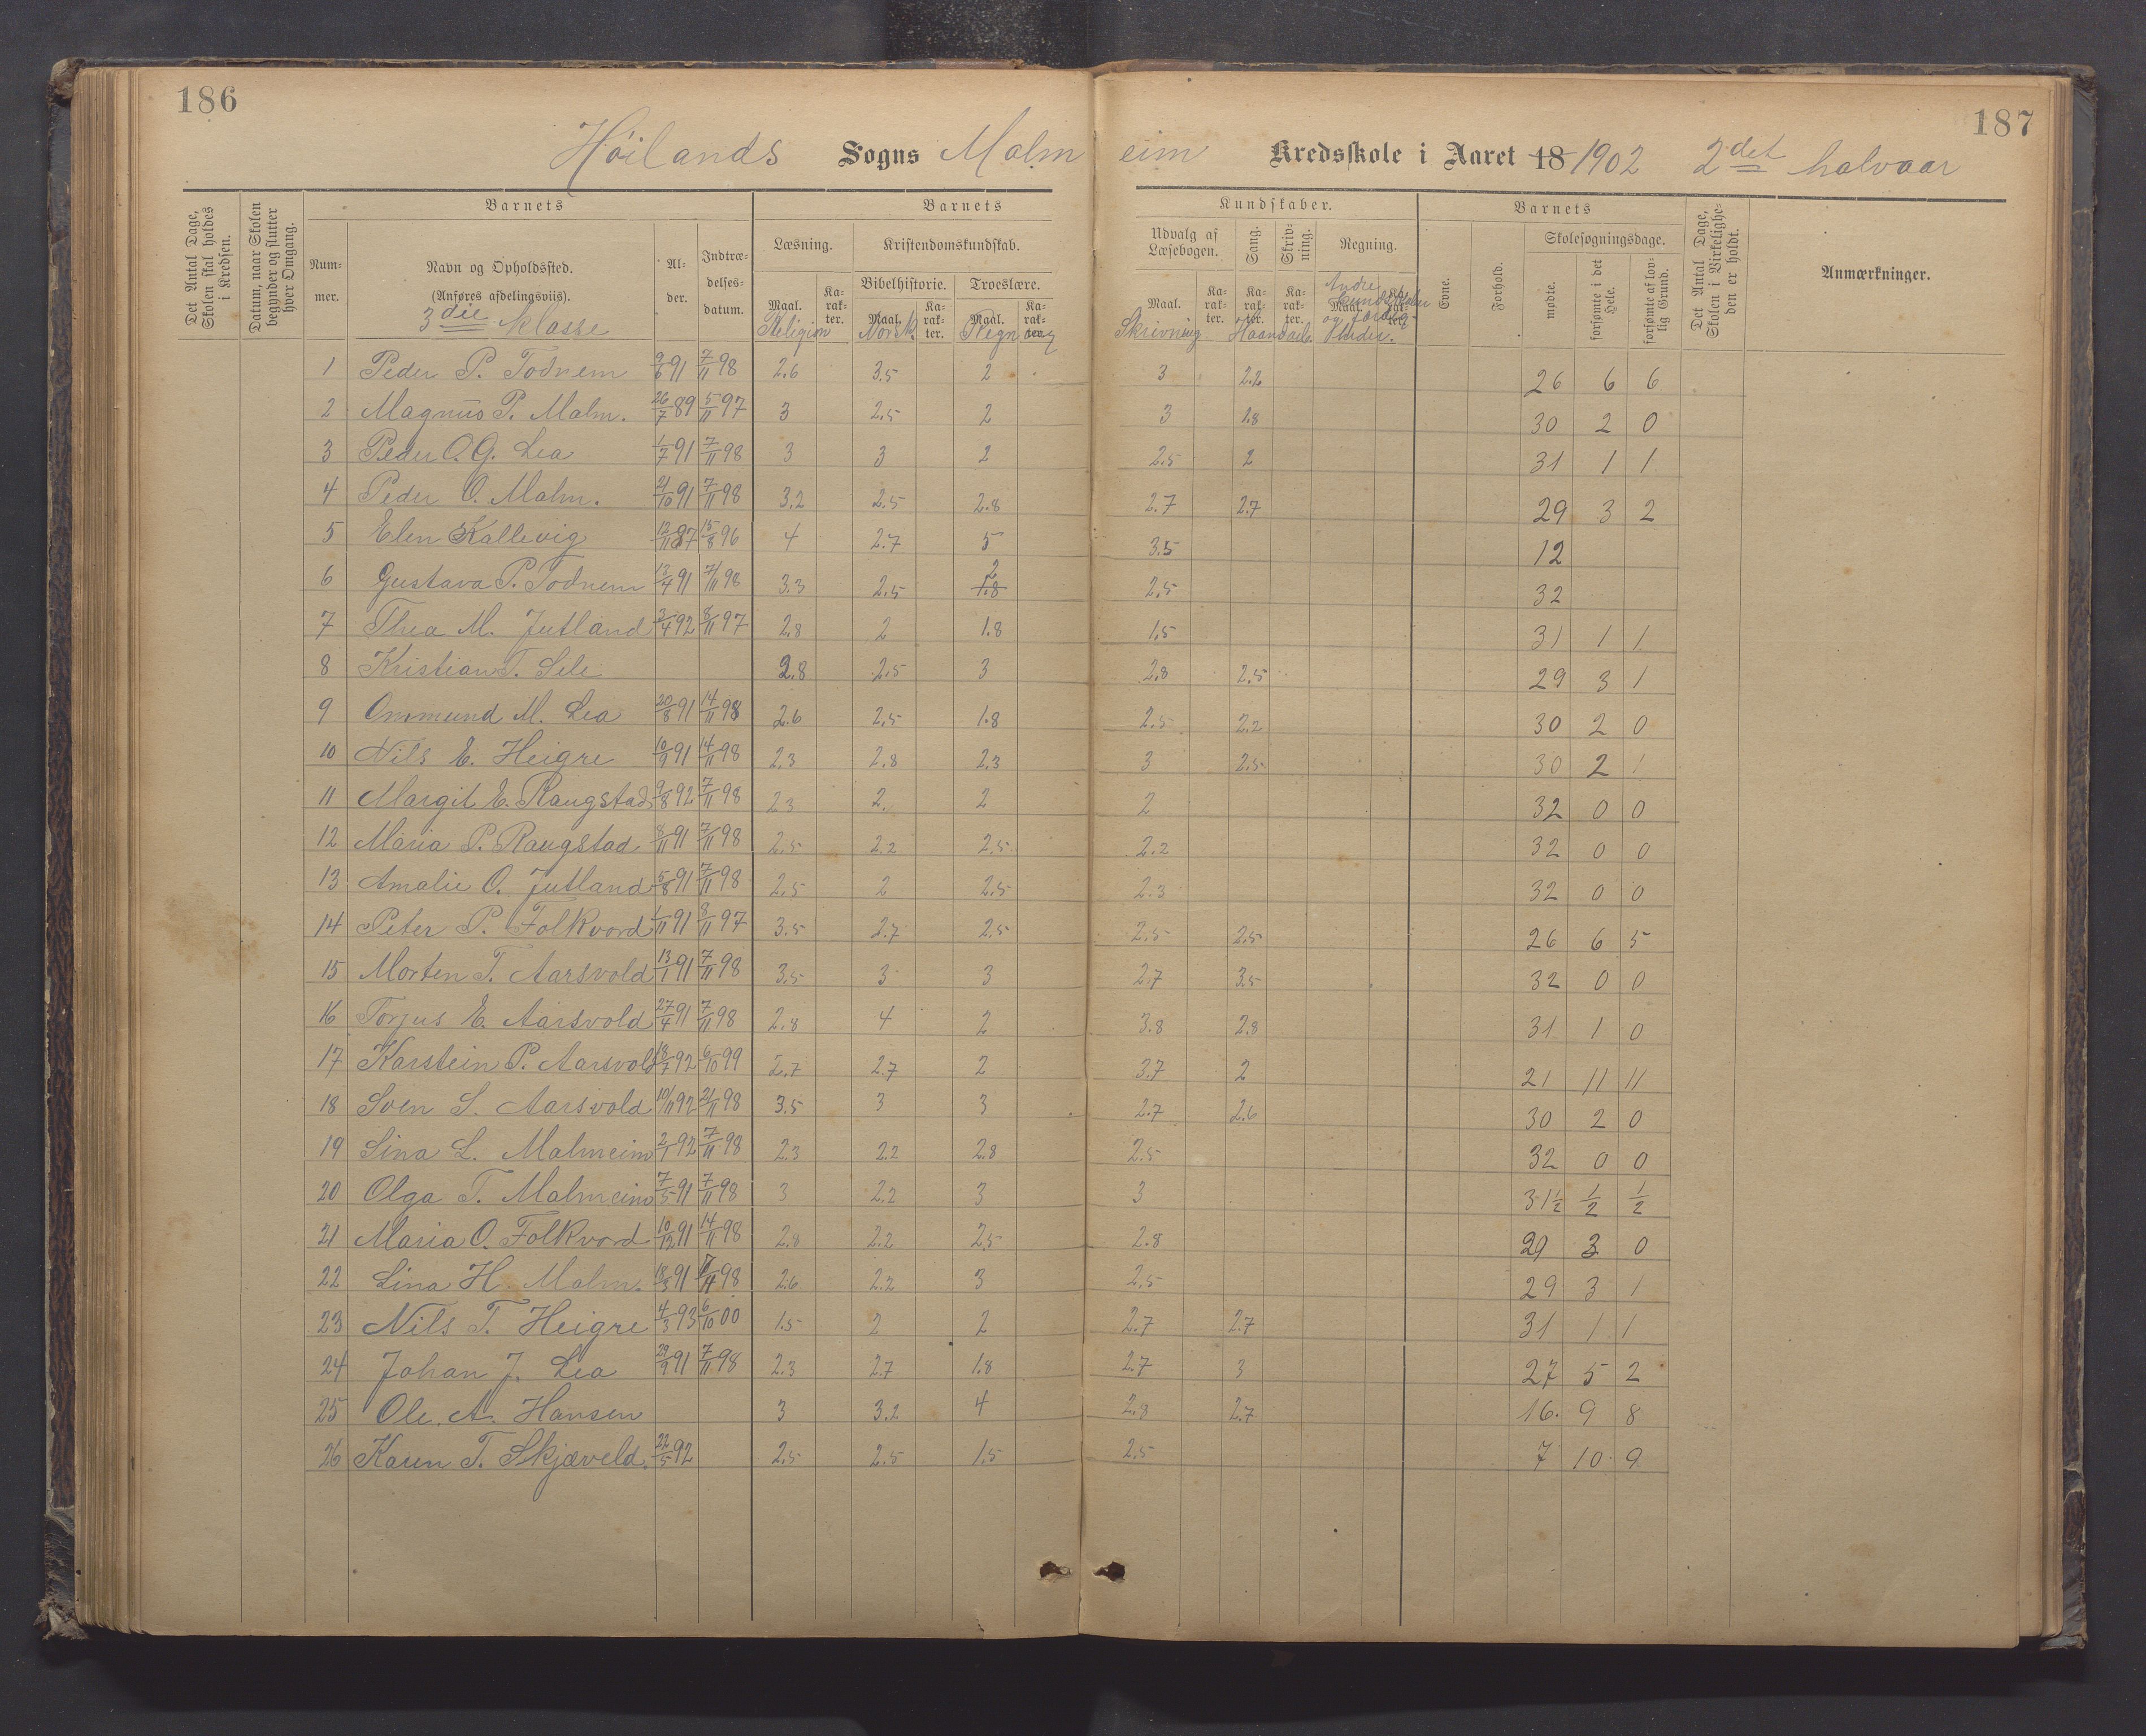 186
187
Höilands Sogns Malm eim Kredsskole i Aaret 18 1902 2det halvaar
Det Antal Dage, Skolen skal holdes i Kredsen.
Datum, naar Skolen begynder og slutter hver Omgang.
Barnets
Barnets
Kundskaber.
Barnets
Det Antal Dage, Skolen i Virkelighe- den er holdt.
Anmærkninger.
Num- mer.
Navn og Opholdssted.
(Anføres afdelingsviis).
3die klasse
Al- der.
Indtræ- delses- datum.
Læsning.
Kristendomskundskab.
Bibelhistorie.
Troeslære.
Udvalg af Læsebogen.
Sang.
Skriv- ning.
Regning.
Evne.
Forhold.
Skolesøgningsdage.
mødte.
forsømte i det Hele.
forsømte af lov- lig Grund.
Maal. Ka- rak- ter. Maal. Ka- rak- ter. Maal. Ka- rak- ter.
Maal. Ka- rak- ter. Ka- rak- ter. Ka- rak- ter. Maal.
Religion Norsk Regning Skrivning Haandarb. Andre Kundskaber og Færdig- heder.
1 Peder P. Todnem 9/6 91 7/11 98 2.6 3.5 2 3 2.2 26 6 6
2 Magnus P. Malm. 26/7 89 5/11 97 3 2.5 2 3 1.8 30 2 0
3 Peder O. G. Lea 1/7 91 7/11 98 3 3 2 2.5 2 31 1 1
4 Peder O. Malm. 21/10 91 7/11 98 3.2 2.5 2.8 2.7 2.7 29 3 2
5 Elen Kallevig 12/11 87 15/8 96 4 2.7 5 3.5 12
6 Gustava P. Todnem 13/4 91 7/11 98 3.3 2.5 2 1.8 2.5 32
7 Thea M. Jutland 3/4 92 8/11 97 2.8 2 1.8 1.5 31 1 1
8 Kristian T. Sele 2.8 2.5 3 2.8 2.5 29 3 1
9 Ommund M. Lea 20/8 91 14/11 98 2.6 2.5 1.8 2.5 2.2 30 2 0
10 Nils E. Heigre 10/9 91 14/11 98 2.3 2.8 2.3 3 2.5 30 2 1
11 Margit E. Raugstad 9/8 92 7/11 98 2.3 2. 2 2 32 0 0
12 Maria P. Raugstad 8/11 91 7/11 98 2.5 2.2 2.5 2.2 32 0 0
13 Amalie O. Jutland 5/8 91 7/11 98 2.5 2 2.5 2.3 32 0 0
14 Peter P. Folkvord 1/11 91 8/11 97 3.5 2.7 2.5 2.5 2.5 26 6 5
15 Morten T. Aarsvold 13/1 91 7/11 98 3.5 3 3 2.7 3.5 32 0 0
16 Torjus E. Aarsvold 27/4 91 7/11 98 2.8 4 2 3.8 2.8 31 1 0
17 Karstein P. Aarsvold 18/7 92 6/10 99 2.7 2.7 2 3.7 2 21 11 11
18 Sven S. Aarsvold 10/11 92 21/11 98 3.5 3 3 2.7 2.6 30 2 0
19 Sina L. Malmeim 2/1 92 7/11 98 2.3 2.2 2.8 2.5 32 0 0
20 Olga T. Malmeim 7/5 91 7/11 98 3 2.2 3 3 31 1/2 1/2 1/2
21 Maria O. Folkvord 10/12 91 14/11 98 2.8 2.2 2.5 2.8 29 3 0
22 Lina H. Malm. 18/3 91 7/11 98 2.6 2.2 3 2.5 29 3 1
23 Nils T. Heigre 4/3 93 6/10 00 1.5 2 2 2.7 2.7 31 1 1
24 Johan J. Lea 29/9 91 7/11 98 2.3 2.7 1.8 2.7 3 27 5 2
25 Ole. A. Hansen 3 3.2 4 2.8 2.7 16. 9 8
26 Karen T. Skjæveld. 22/5 92 2.5 2.5 1.5 2.5 7 10. 9